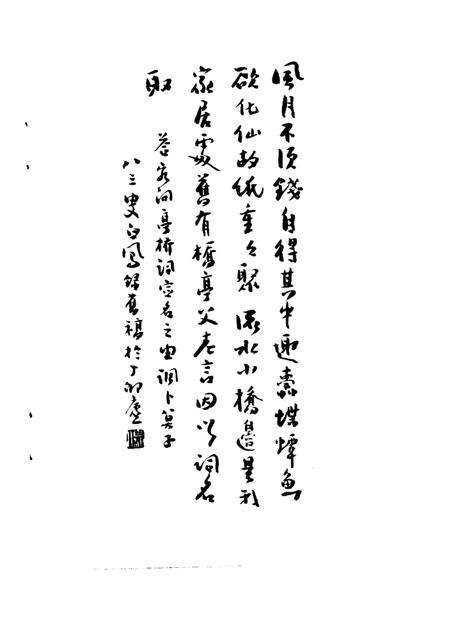 風月不須錢自得其中趣蠹蝶蟫魚
欲化仙故紙重々聚 流水小橋邊是我
家居處舊有橋亭父老言因以詞名
取
答客问亭橋词室名之由调卜算子
八三叟白鳳錄舊稿於丁卯